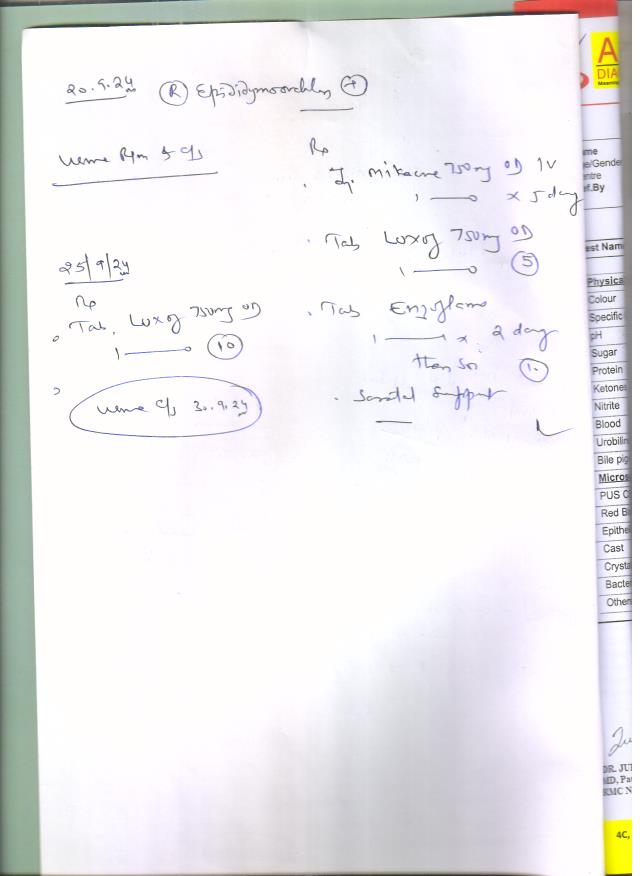 20.9.24 (R) Epididymoorchitis (+)
Urine R/m & c/s
Rp
Inj. Mikacine 750mg OD IV
1 —— o x 5 day
Tab Loxof 750mg OD
1 —— o (5)
Tab Enzoflam
1 —— x 2 day
then SOS (10)
Scrotal Support
25/9/24
Rp
Tab. Loxof 750mg OD
1 —— o (10)
Urine c/s 30.9.24
A
DIA
me
e/Gende
ntre
ef.By
est Nam
Physica
Colour
Specific
pH
Sugar
Protein
Ketones
Nitrite
Blood
Urobilin
Bile pig
Micros
PUS C
Red B
Epithe
Cast
Crysta
Bacte
Other
DR. JU
MD, Pa
RMC N
4C,